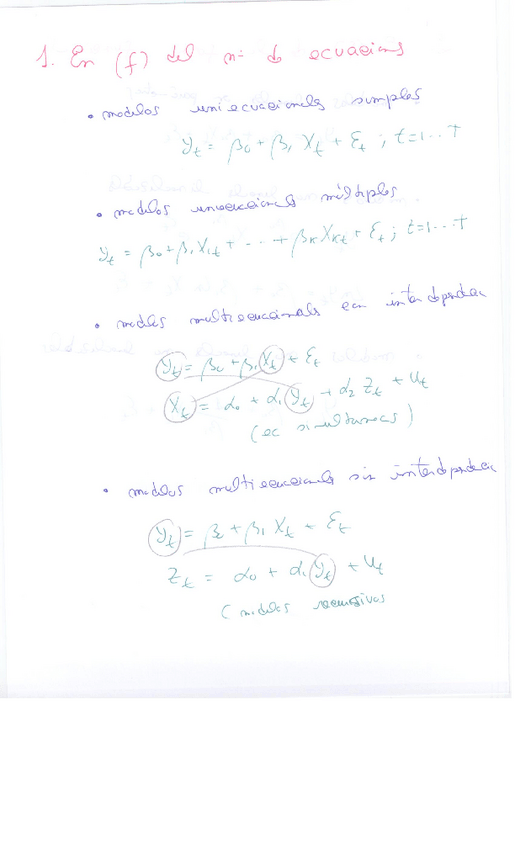 1. En (f) del nº de ecuaciones
• modelos uniecuacionales simples
Yt = β0 + β1 Xt + Et ; t=1...T
• modelos uniecuacionales múltiples
Yt = β0 + β1 X1t + ... + βK XKt + Et ; t=1...T
• modelos multiecuacionales con interdependencia
Yt = β0 + β1 Xt + Et
Xt = α0 + α1 Yt + α2 Zt + Ut
(ec simultaneas)
• modelos multiecuacionales sin interdependencia
Yt = β0 + β1 Xt + Et
Zt = α0 + α1 Yt + Ut
(modelos recursivos